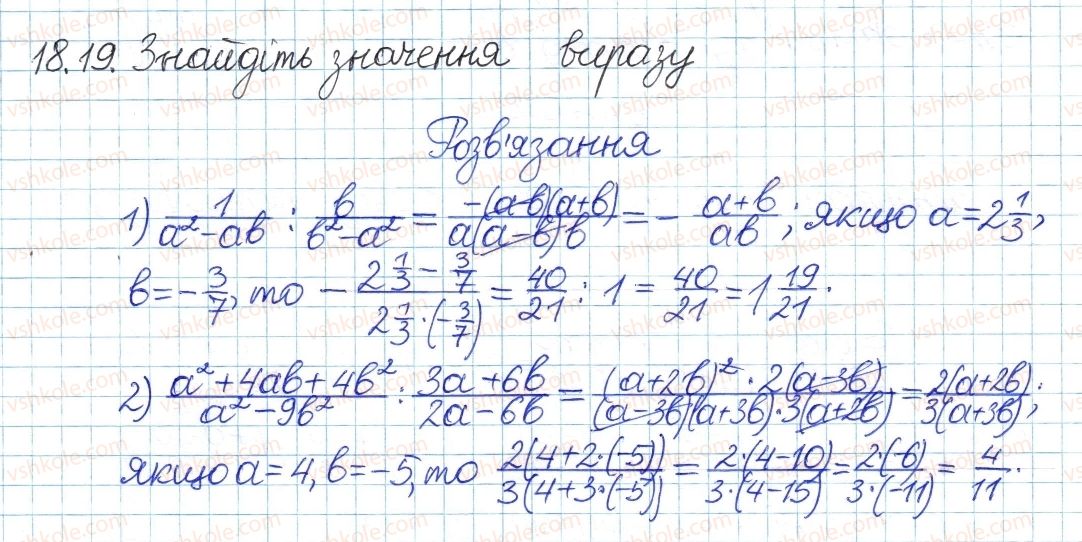 18.19. Знайдіть значення виразу
Розв'язання
1) \frac{1}{a^2-ab} : \frac{b}{b^2-a^2} = \frac{-(a-b)(a+b)}{a(a-b)b} = -\frac{a+b}{ab}; якщо a=2\frac{1}{3},
b=-\frac{3}{7}, то -\frac{2\frac{1}{3}-\frac{3}{7}}{2\frac{1}{3}\cdot(-\frac{3}{7})} = \frac{40}{21} : 1 = \frac{40}{21} = 1\frac{19}{21}.
2) \frac{a^2+4ab+4b^2}{a^2-9b^2} : \frac{3a+6b}{2a-6b} = \frac{(a+2b)^2\cdot 2(a-3b)}{(a-3b)(a+3b)\cdot 3(a+2b)} = \frac{2(a+2b)}{3(a+3b)};
якщо a=4, b=-5, то \frac{2(4+2\cdot(-5))}{3(4+3\cdot(-5))} = \frac{2\cdot(4-10)}{3\cdot(4-15)} = \frac{2\cdot(-6)}{3\cdot(-11)} = \frac{4}{11}.